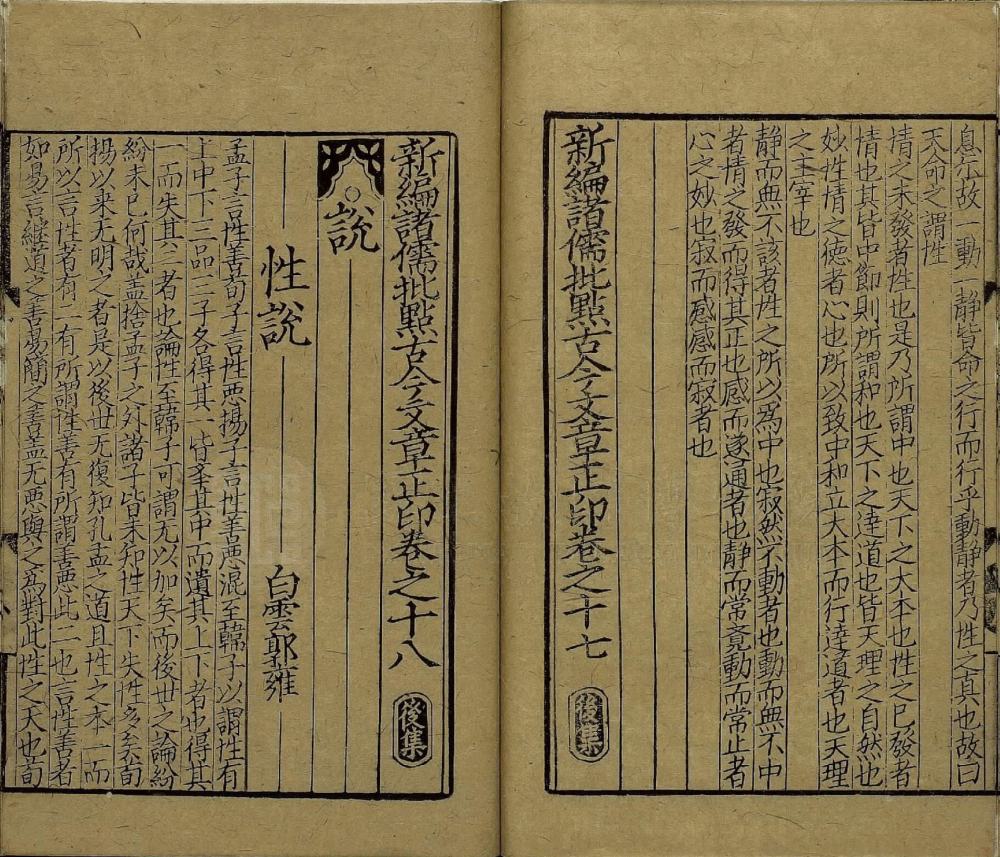 息尓故一動一静皆命之行而行乎動静者乃性之真也故曰
天命之謂性
情之未發者性也是乃所謂中也天下之大本也性之已發者
情也其皆中節則所謂和也天下之達道也皆天理之自然也
妙性情之德者心也所以致中和立大本而行達道者也天理
之主宰也
静而無不該者性之所以爲中也寂然不動者也動而無不中
者情之發而得其正也感而遂通者也静而常覺動而常止者
心之妙也寂而感感而寂者也
新編諸儒批點古今文章正印卷之十七 後集
新編諸儒批點古今文章正印卷之十八 後集
說
性說 白雲郭雍
孟子言性善荀子言性悪揚子言性善悪混至韓子以謂性有
上中下三品二子各得其一皆夲其中而遺其上下者也得其
一而失其二者也論性至韓子可謂无以加矣而後世之論紛
紛未已何哉盖捨孟子之外諸子皆未知性天下失性多矣荀
揚以来无明之者是以後世无復知孔孟之道且性之本一而
所以言性者有二有所謂性善有所謂善悪此二也言性善者
如易言継道之善易簡之善盖无悪與之爲對此性之天也荀